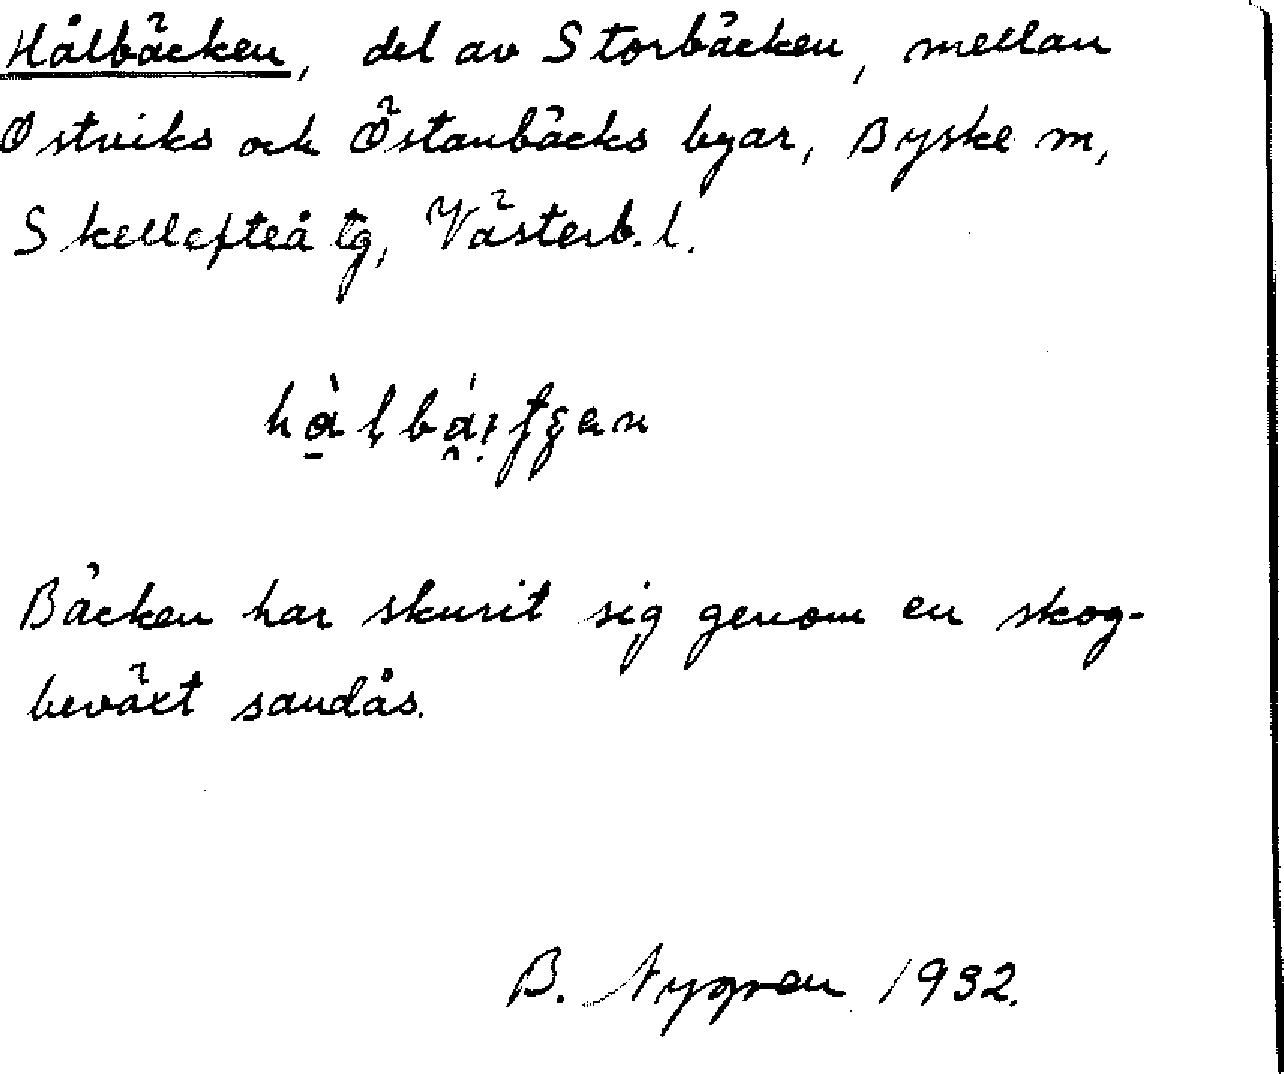 Hålbäcken, del av Storbäcken, mellan
Ostviks och Östanbäcks byar, Byske m,
Skellefteå tg, Västerb. l.
Bäcken har skurit sig genom en skog-
beväxt sandås.
B. Nygren 1932.